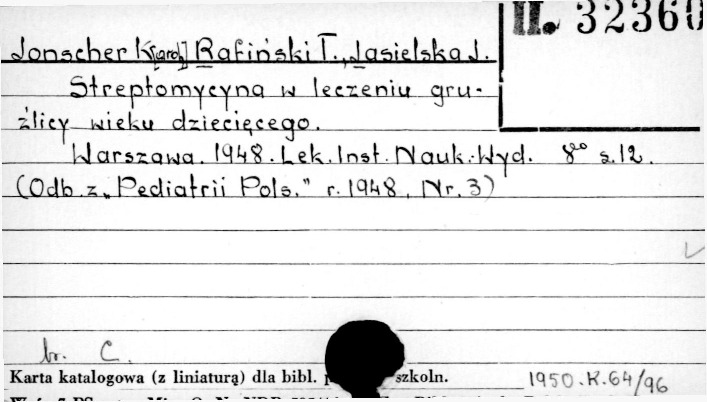 II. 32360
Jonscher K[arol] Rafiński T., Jasielska J.
Streptomycyna w leczeniu gru-
źlicy wieku dziecięcego.
Warszawa. 1948. Lek. Inst. Nauk.-Wyd. 8° s. 12.
(Odb. z „Pediatrii Pols." r. 1948, Nr. 3)
br. C.
Karta katalogowa (z liniaturą) dla bibl. szkoln.
1950.K.64/96